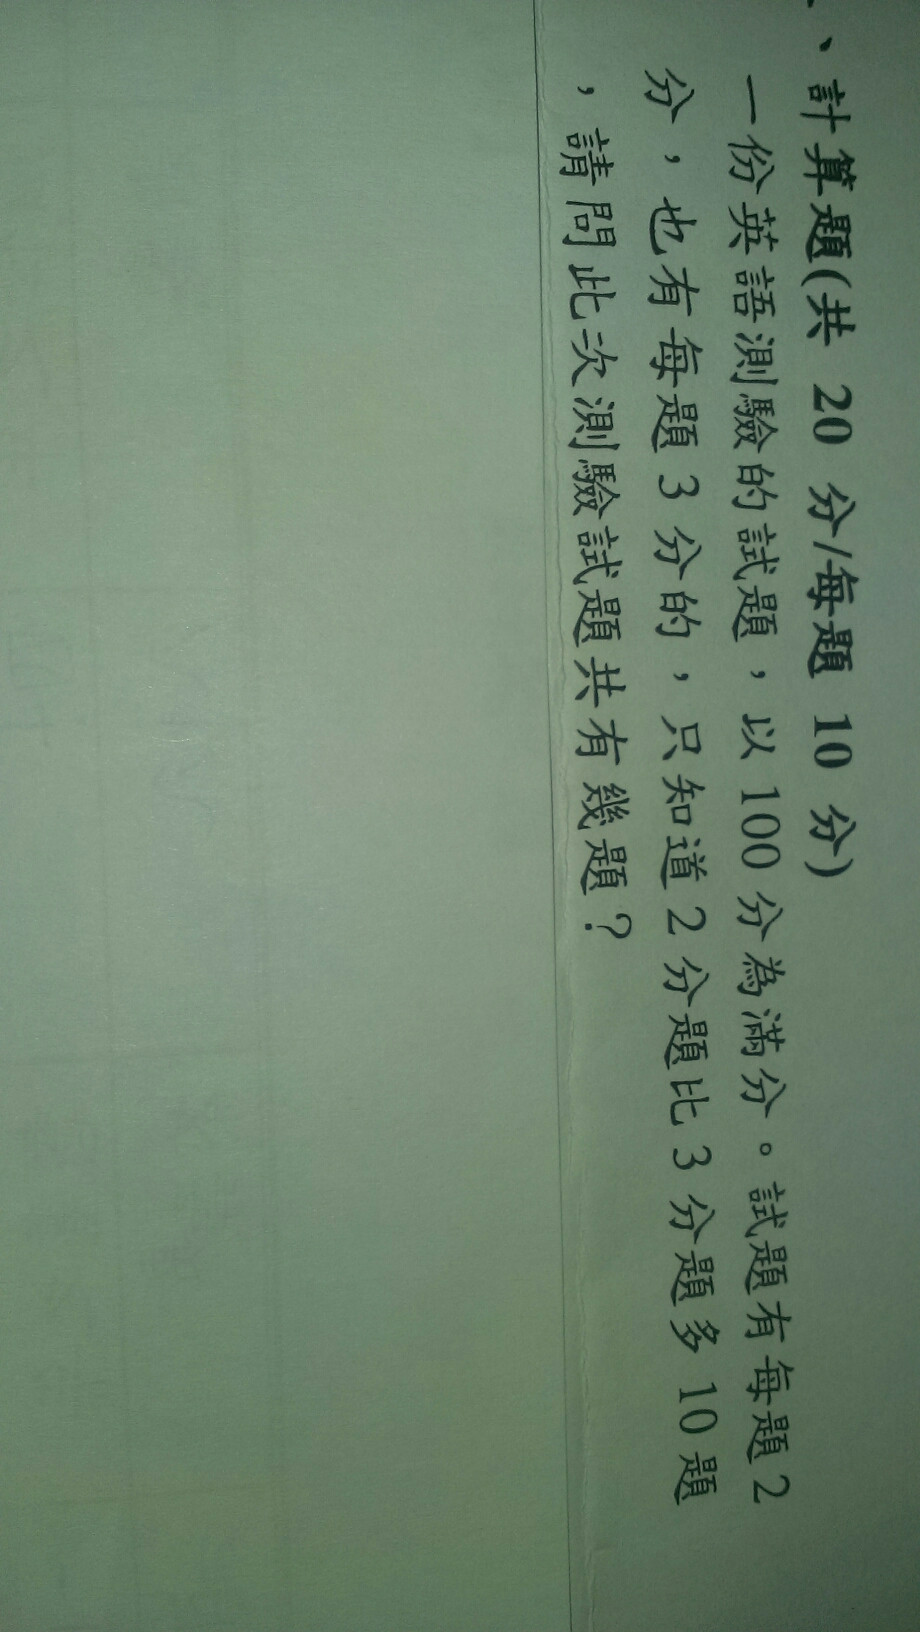 、計算題(共 20 分/每題 10 分)
一份英語測驗的試題，以100分為滿分。試題有每題2
分，也有每題3分的，只知道2分題比3分題多10題
，請問此次測驗試題共有幾題？